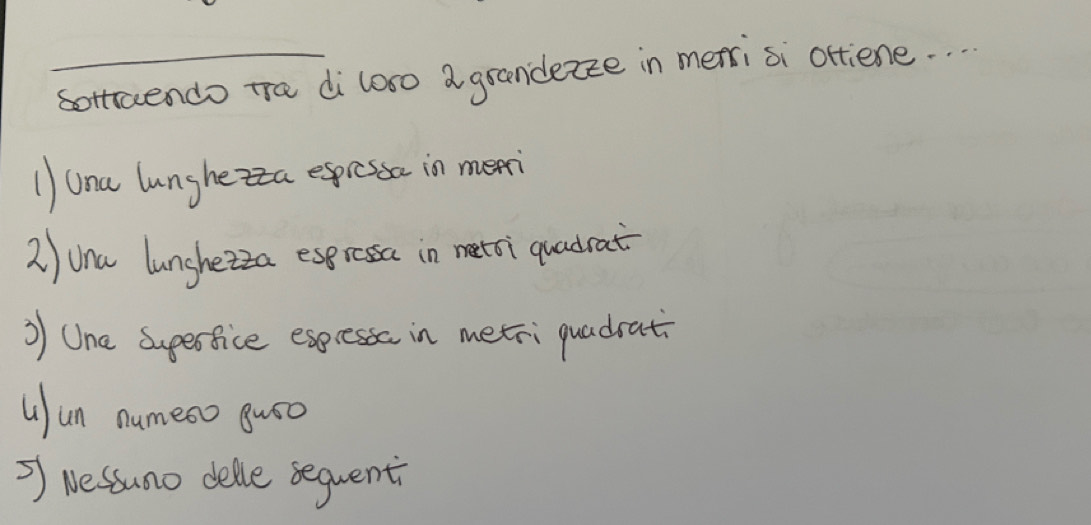 Sottraendo tra di loro 2 grandezze in metri si ottiene....
1) Una lunghezza espressa in metri
2) Una lunghezza espressa in metri quadrati
3) Una superfice espressa in metri quadrati
4) un numero puro
5) Nessuno delle seguenti